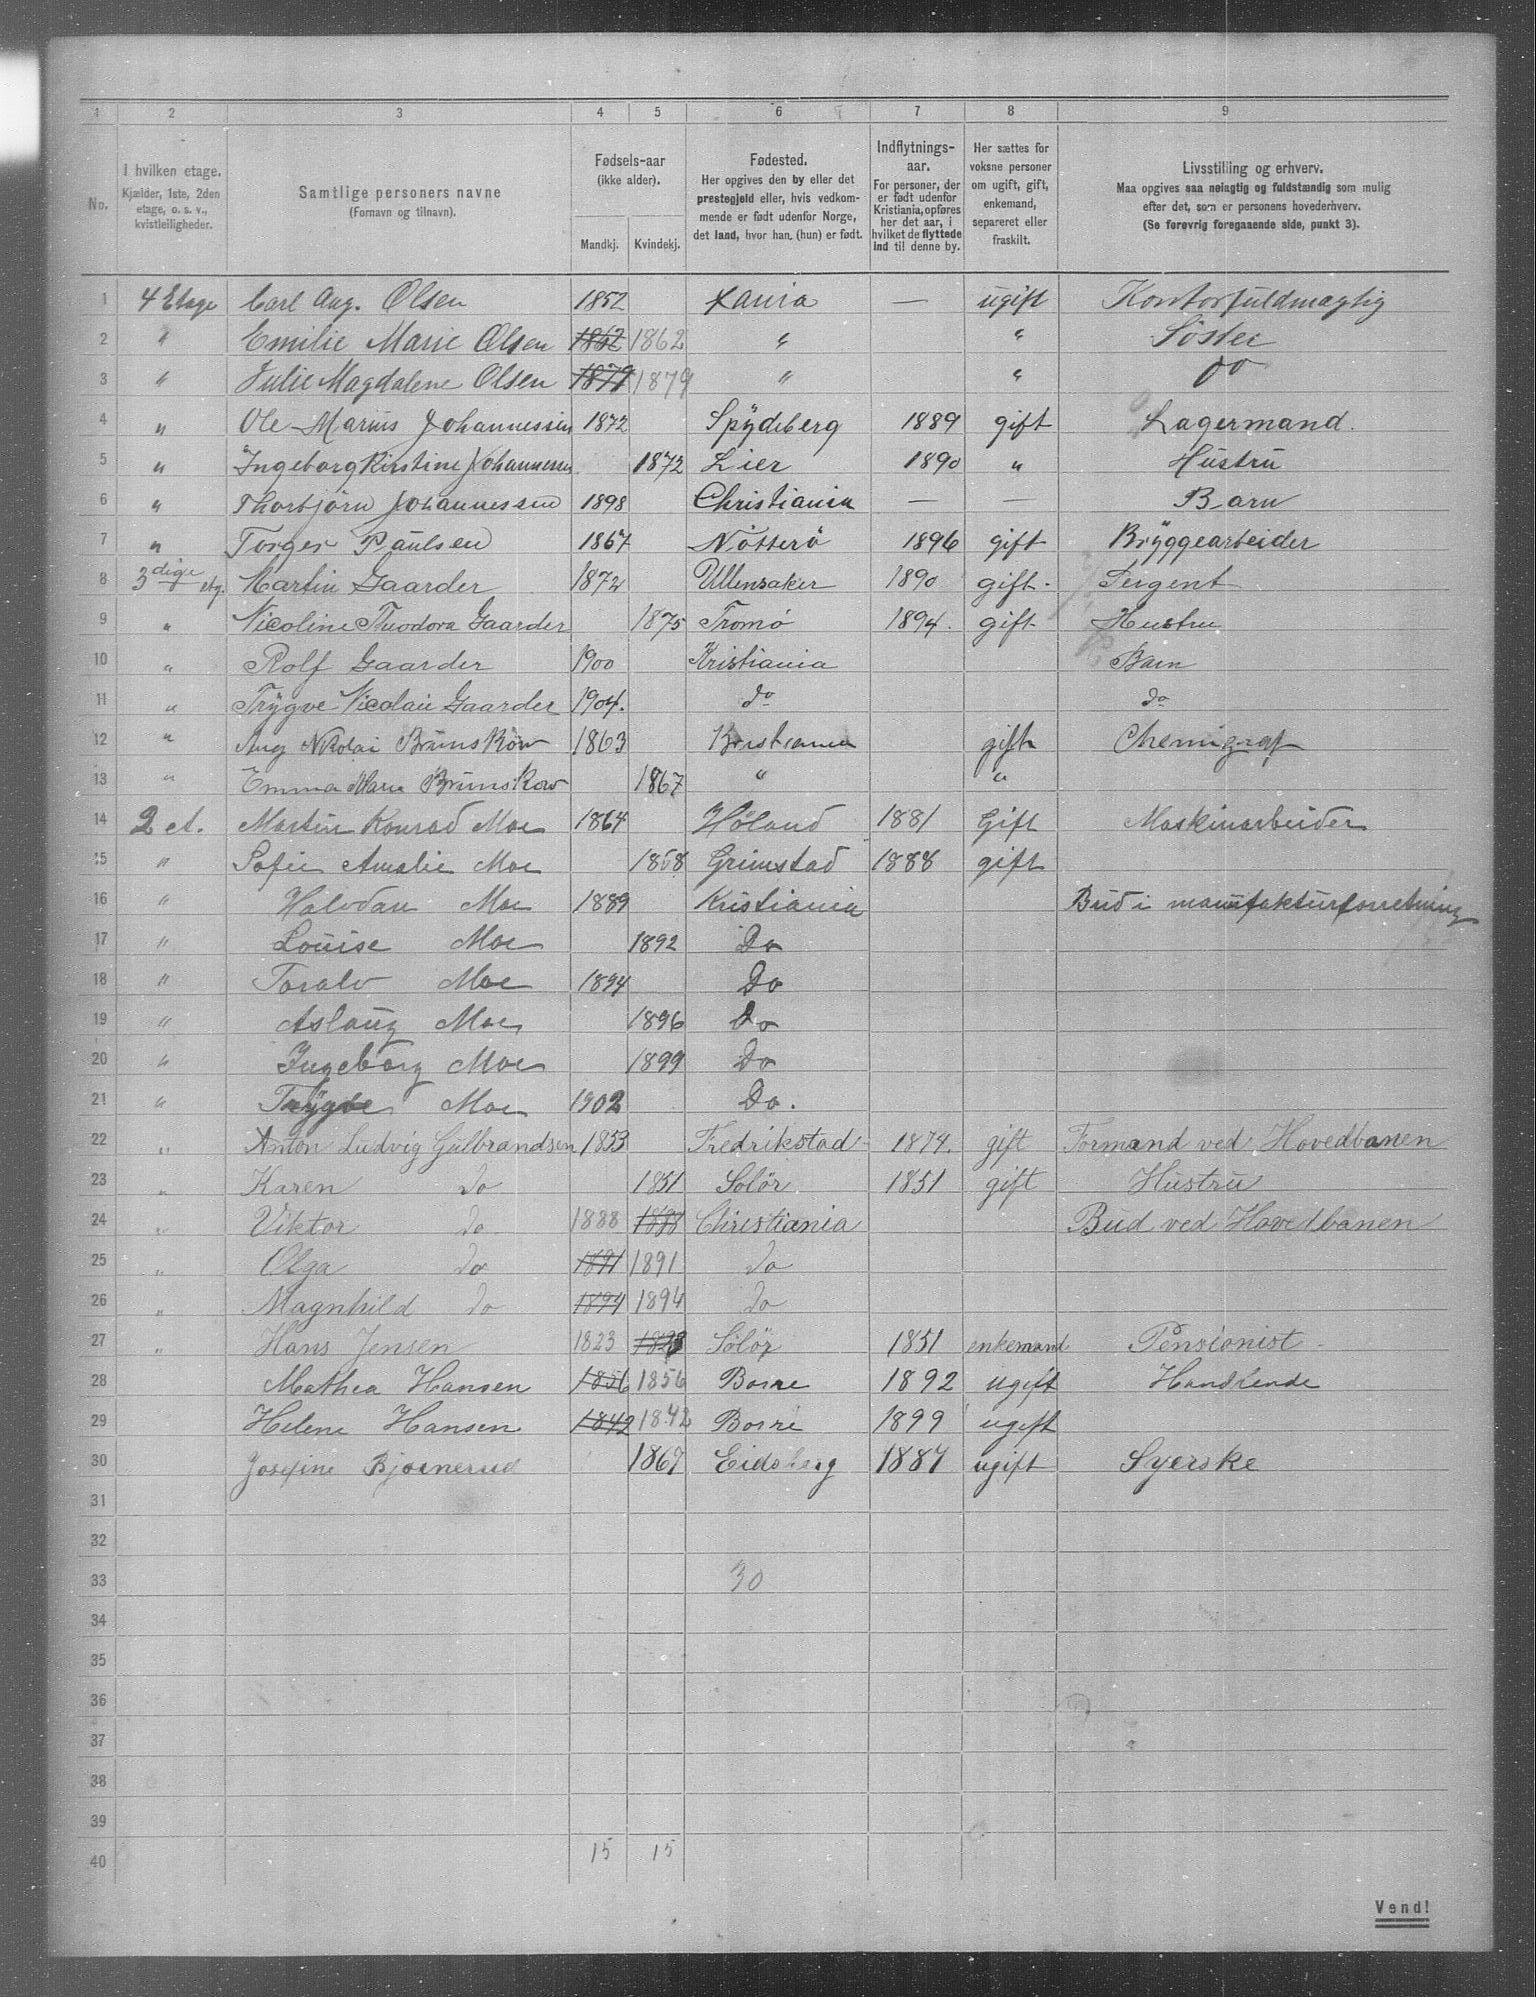 1 2 3 4 5 6 7 8 9
No. I hvilken etage. Kjælder, 1ste, 2den etage, o. s. v., kvistleiligheder. Samtlige personers navne (Fornavn og tilnavn). Fødsels-aar (ikke alder). Mandkj. Kvindekj. Fødested. Her opgives den by eller det prestegjeld eller, hvis vedkommende er født udenfor Norge, det land, hvor han (hun) er født. Indflytnings-aar. For personer, der er født udenfor Kristiania, opføres her det aar, i hvilket de flyttede ind til denne by. Her sættes for voksne personer om ugift, gift, enkemand, separeret eller fraskilt. Livsstilling og erhverv. Maa opgives saa nøiagtig og fuldstændig som mulig efter det, som er personens hovederhverv. (Se forøvrig foregaaende side, punkt 3).
1 4 Etage Carl Aug. Olsen 1852 Xania — ugift Kontorfuldmægtig
2 " Emilie Marie Olsen 1862 1862 " " Søster
3 " Julie Magdalene Olsen 1879 1879 " " do
4 " Ole Marius Johannessen 1872 Spydeberg 1889 gift Lagermand.
5 " Ingeborg Kirstine Johannessen 1872 Lier 1890 " Hustru
6 " Thorbjørn Johannessen 1898 Christiania — — Barn
7 " Torger Paulsen 1867 Nötterö 1896 gift Bryggearbeider
8 3 dige etg. Martin Gaarder 1872 Ullensaker 1890 gift. Sergent
9 " Nicoline Theodora Gaarder 1875 Tromö 1894. gift Hustru
10 " Rolf Gaarder 1900 Kristiania Barn
11 " Trygve Nicolai Gaarder 1904. do do
12 " Aug Nikolai Brunskow 1863 Kristiania gift Chemigraf
13 " Emma Marie Brunskow 1867 " "
14 2 et. Martin Konrad Moe 1864 Høland 1881 Gift Maskinarbeider
15 " Sofie Amalie Moe 1868 Grimstad 1888 gift
16 " Halvdan Moe 1889 Kristiania Bud i manufakturforretning
17 " Louise Moe 1892 Do
18 " Toralv Moe 1894 Do
19 " Aslaug Moe 1896 Do
20 " Ingeborg Moe 1899 Do
21 " Trygve Moe 1902 Do.
22 " Anton Ludvig Gulbrandsen 1853 Fredrikstad 1874. gift Formand ved Hovedbanen
23 " Karen do 1851 Solör 1851 gift Hustru
24 " Viktor do 1888 1888 Christiania Bud ved Hovedbanen
25 " Olga do 1891 1891 do
26 " Magnhild do 1894 1894 do
27 " Hans Jensen 1823 1823 Solör 1851 enkemand Pensionist
28 Mathea Hansen 1856 1856 Borre 1892 ugift Handlende
29 Helene Hansen 1842 1842 Borre 1899 ugift
30 Josefine Bjørnerud 1867 Eidsberg 1887 ugift Syerske
31
32
33 30
34
35
36
37
38
39
40 15 15
Vend!